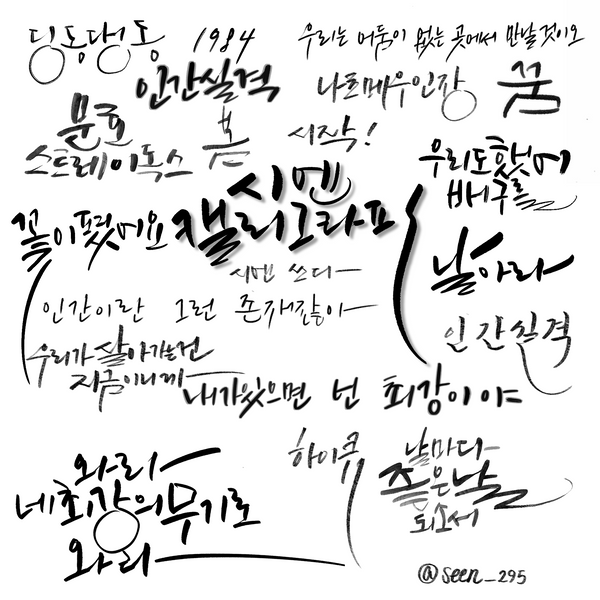 딩동댕동
1984
우리는 어둠이 없는 곳에서 만날 것이오
인간실격
나츠메우인장
꿈
문호
스트레이독스
봄
시작!
우리도 했어
배구를
시멘
캘리그라피
꽃이 폈어요
날아라
시멘 쓰다
인간이란 그런 존재같아
인간실격
우리가 살아가는건
지금이니께
내가 있으면 넌 최강이야
하이큐
날마다
좋은날
되소서
와라
네 최강의 무기로
와라
@seen_295